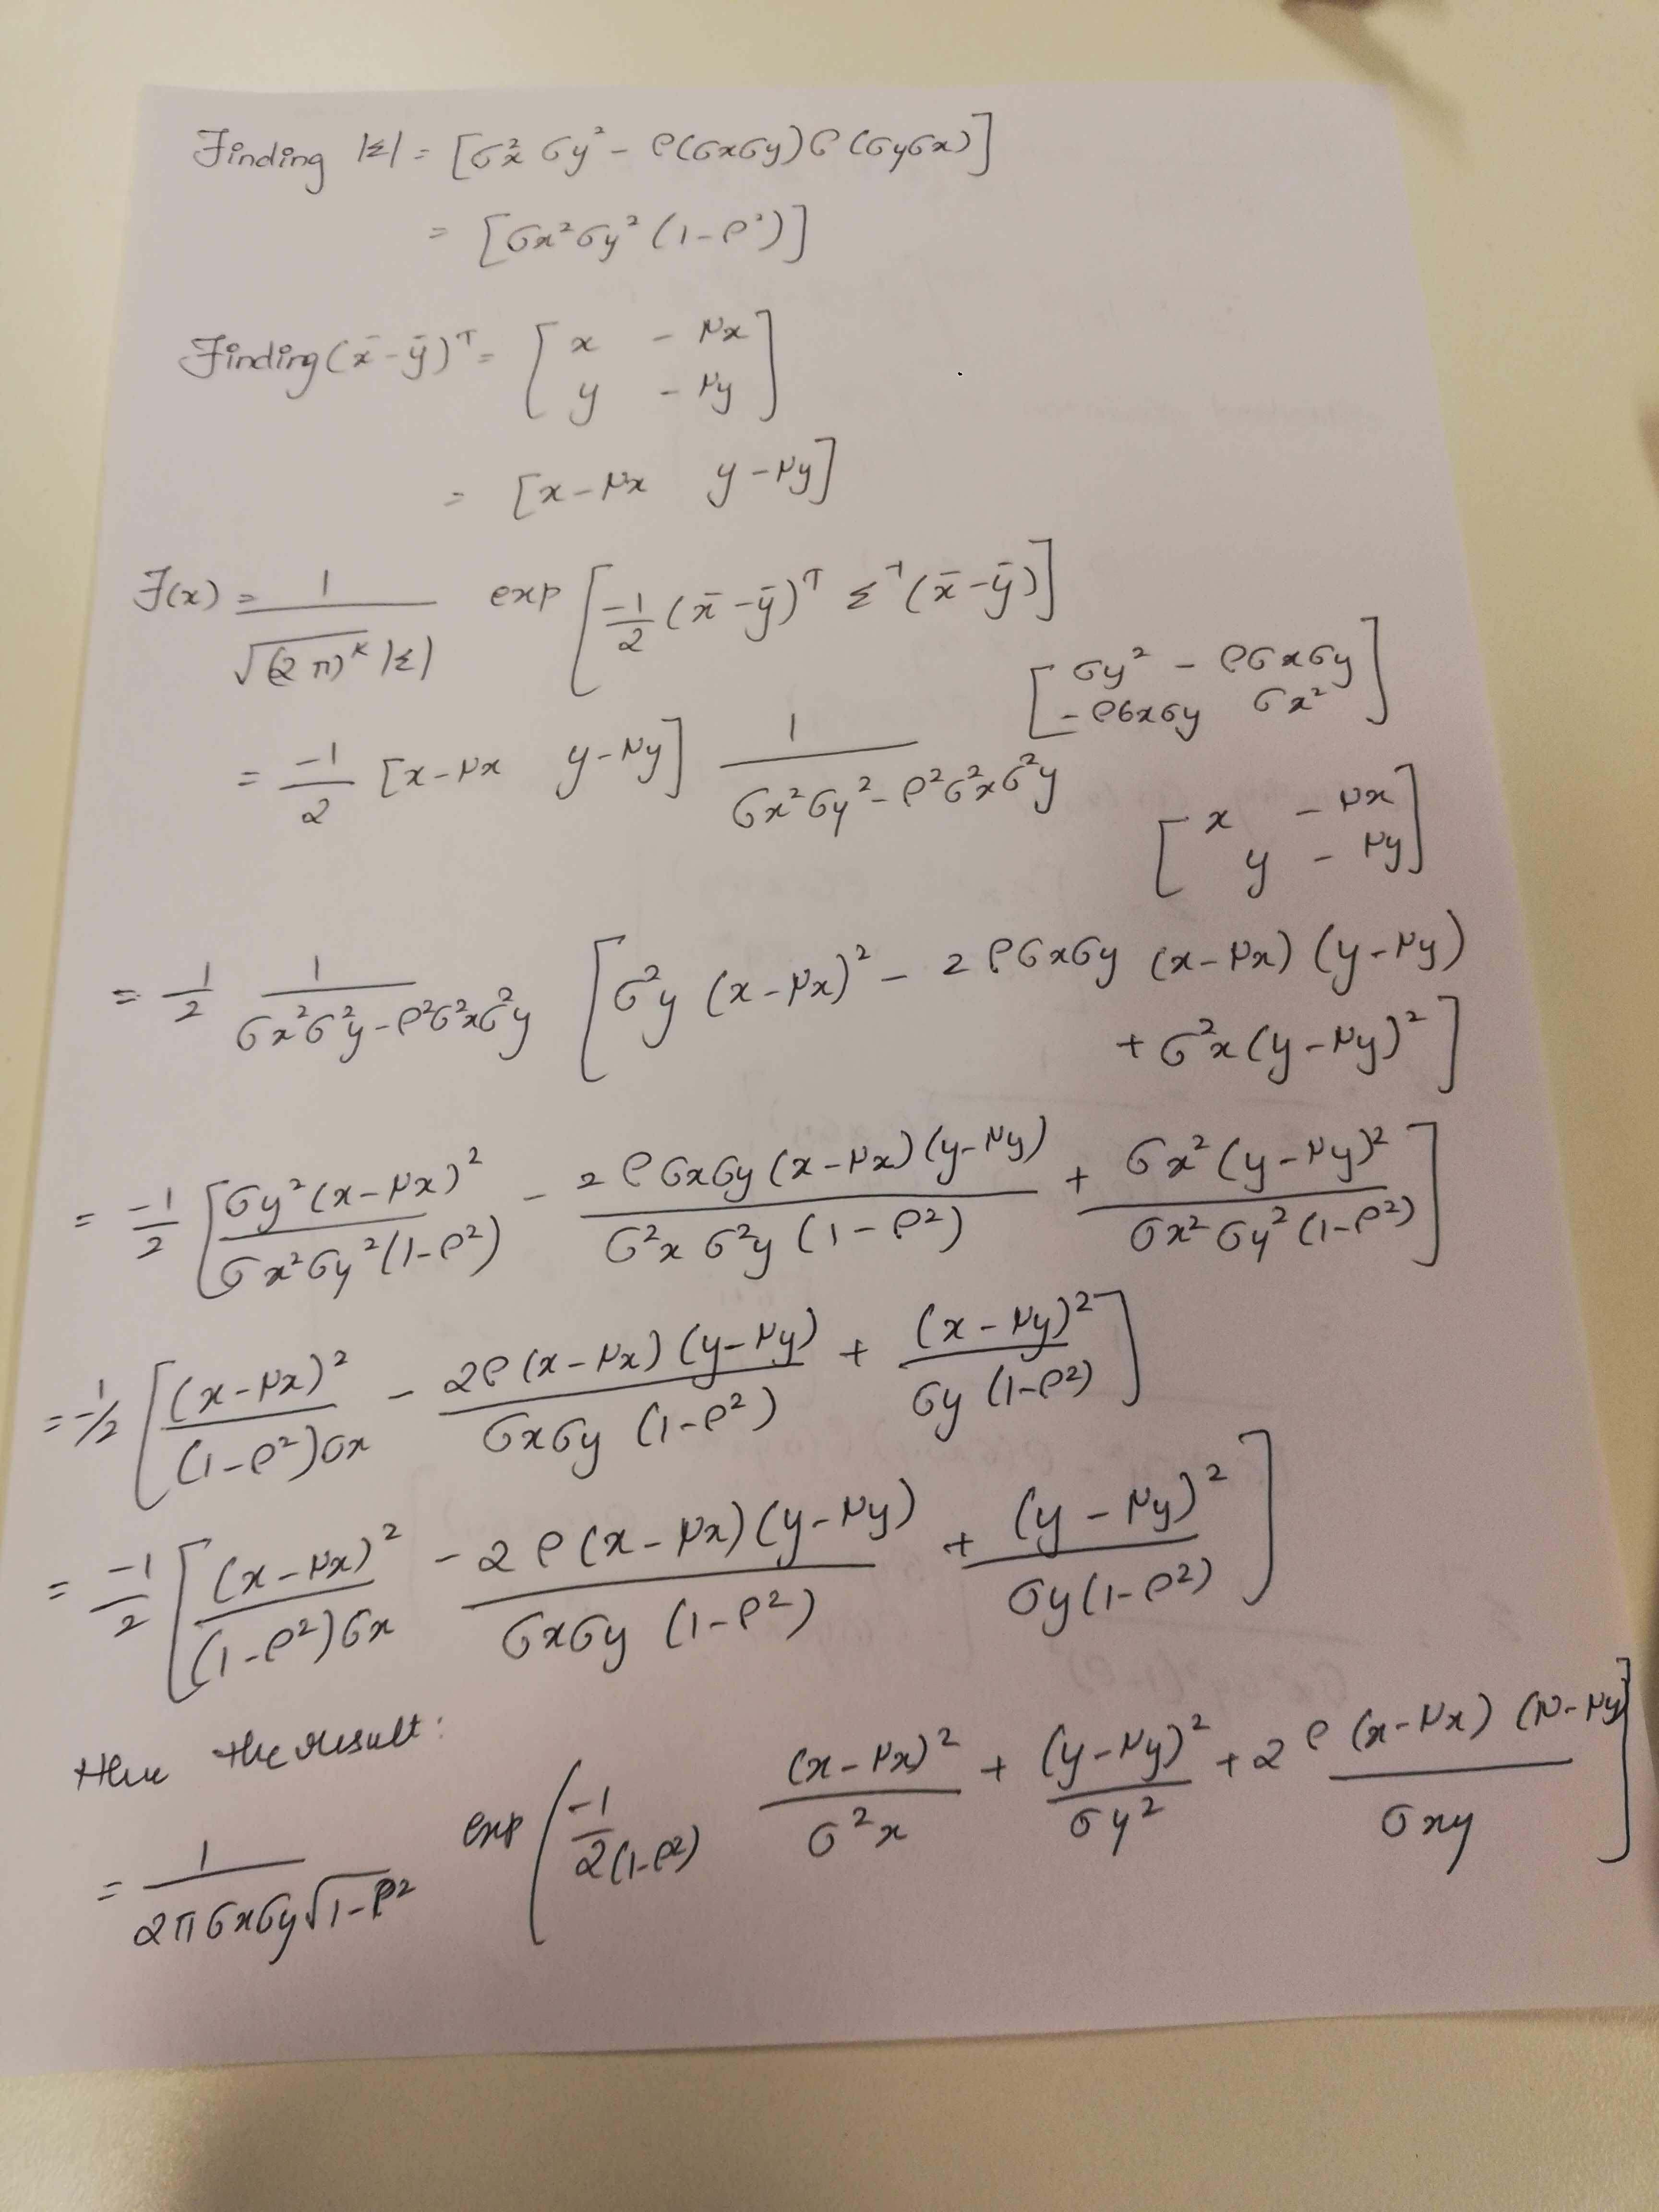 Finding |Σ| = [σx² σy² - ρ(σxσy) ρ(σyσx)]
= [σx²σy² (1-ρ²)]
Finding (x̄ - ȳ)ᵀ = [x - μx
y - μy]
= [x-μx y-μy]
F(x) = 1/√(2π)ᵏ|Σ| exp [-1/2 (x̄-ȳ)ᵀ Σ⁻¹ (x̄-ȳ)]
= -1/2 [x-μx y-μy] 1/(σx²σy² - ρ²σ²xσ²y) [σy² - ρσxσy
-ρσxσy σx²]
[x - μx
y - μy]
= -1/2 1/(σx²σ²y - ρ²σ²xσ²y) [σ²y (x-μx)² - 2ρσxσy (x-μx) (y-μy)
+ σ²x (y-μy)²]
= -1/2 [σy²(x-μx)²/σx²σy²(1-ρ²) - 2ρσxσy(x-μx)(y-μy)/σ²xσ²y(1-ρ²) + σx²(y-μy)²/σx²σy²(1-ρ²)]
= -1/2 [(x-μx)²/(1-ρ²)σx - 2ρ(x-μx)(y-μy)/σxσy(1-ρ²) + (x-μy)²/σy(1-ρ²)]
= -1/2 [(x-μx)²/(1-ρ²)σx - 2ρ(x-μx)(y-μy)/σxσy(1-ρ²) + (y-μy)²/σy(1-ρ²)]
the result:
= 1/2πσxσy√1-ρ² exp (-1/2(1-ρ²) (x-μx)²/σ²x + (y-μy)²/σy² + 2ρ(x-μx)(μ-μy)/σxy]